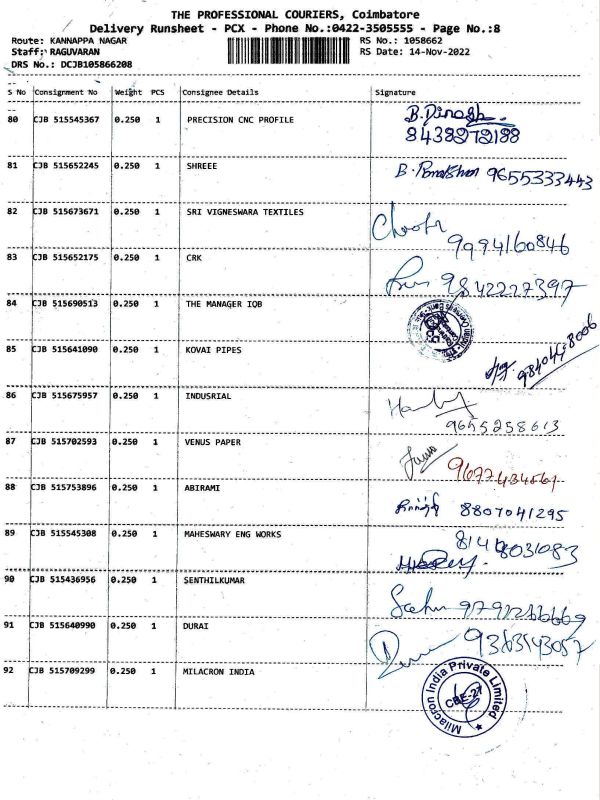 THE PROFESSIONAL COURIERS, Coimbatore
Delivery Runsheet - PCX - Phone No.:0422-3505555 - Page No.:8
Route: KANNAPPA NAGAR RS No.: 1058662
Staff: RAGUVARAN RS Date: 14-Nov-2022
DRS No.: DCJB105866208
S No Consignment No Weight PCS Consignee Details Signature
80 CJB 515545367 0.250 1 PRECISION CNC PROFILE B. Dinesh
8438272188
81 CJB 515652245 0.250 1 SHREEE 9655333443
82 CJB 515673671 0.250 1 SRI VIGNESWARA TEXTILES
9994160846
83 CJB 515652175 0.250 1 CRK 9842227397
84 CJB 515690513 0.250 1 THE MANAGER IQB
85 CJB 515641090 0.250 1 KOVAI PIPES
86 CJB 515675957 0.250 1 INDUSRIAL
9655258613
87 CJB 515702593 0.250 1 VENUS PAPER
9677434561
88 CJB 515753896 0.250 1 ABIRAMI 8807041295
89 CJB 515545308 0.250 1 MAHESWARY ENG WORKS
90 CJB 515436956 0.250 1 SENTHILKUMAR
91 CJB 515640990 0.250 1 DURAI 9363143057
92 CJB 515709299 0.250 1 MILACRON INDIA
Milacron India Private Limited
CBE-27